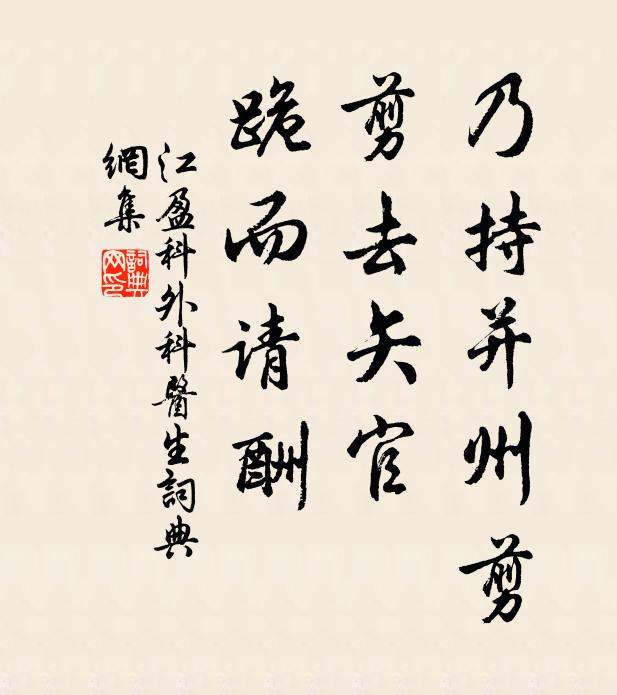 乃持并州剪
剪去矢官
跪而请酬
江盈科外科醫生詞典
網集
詞典网印